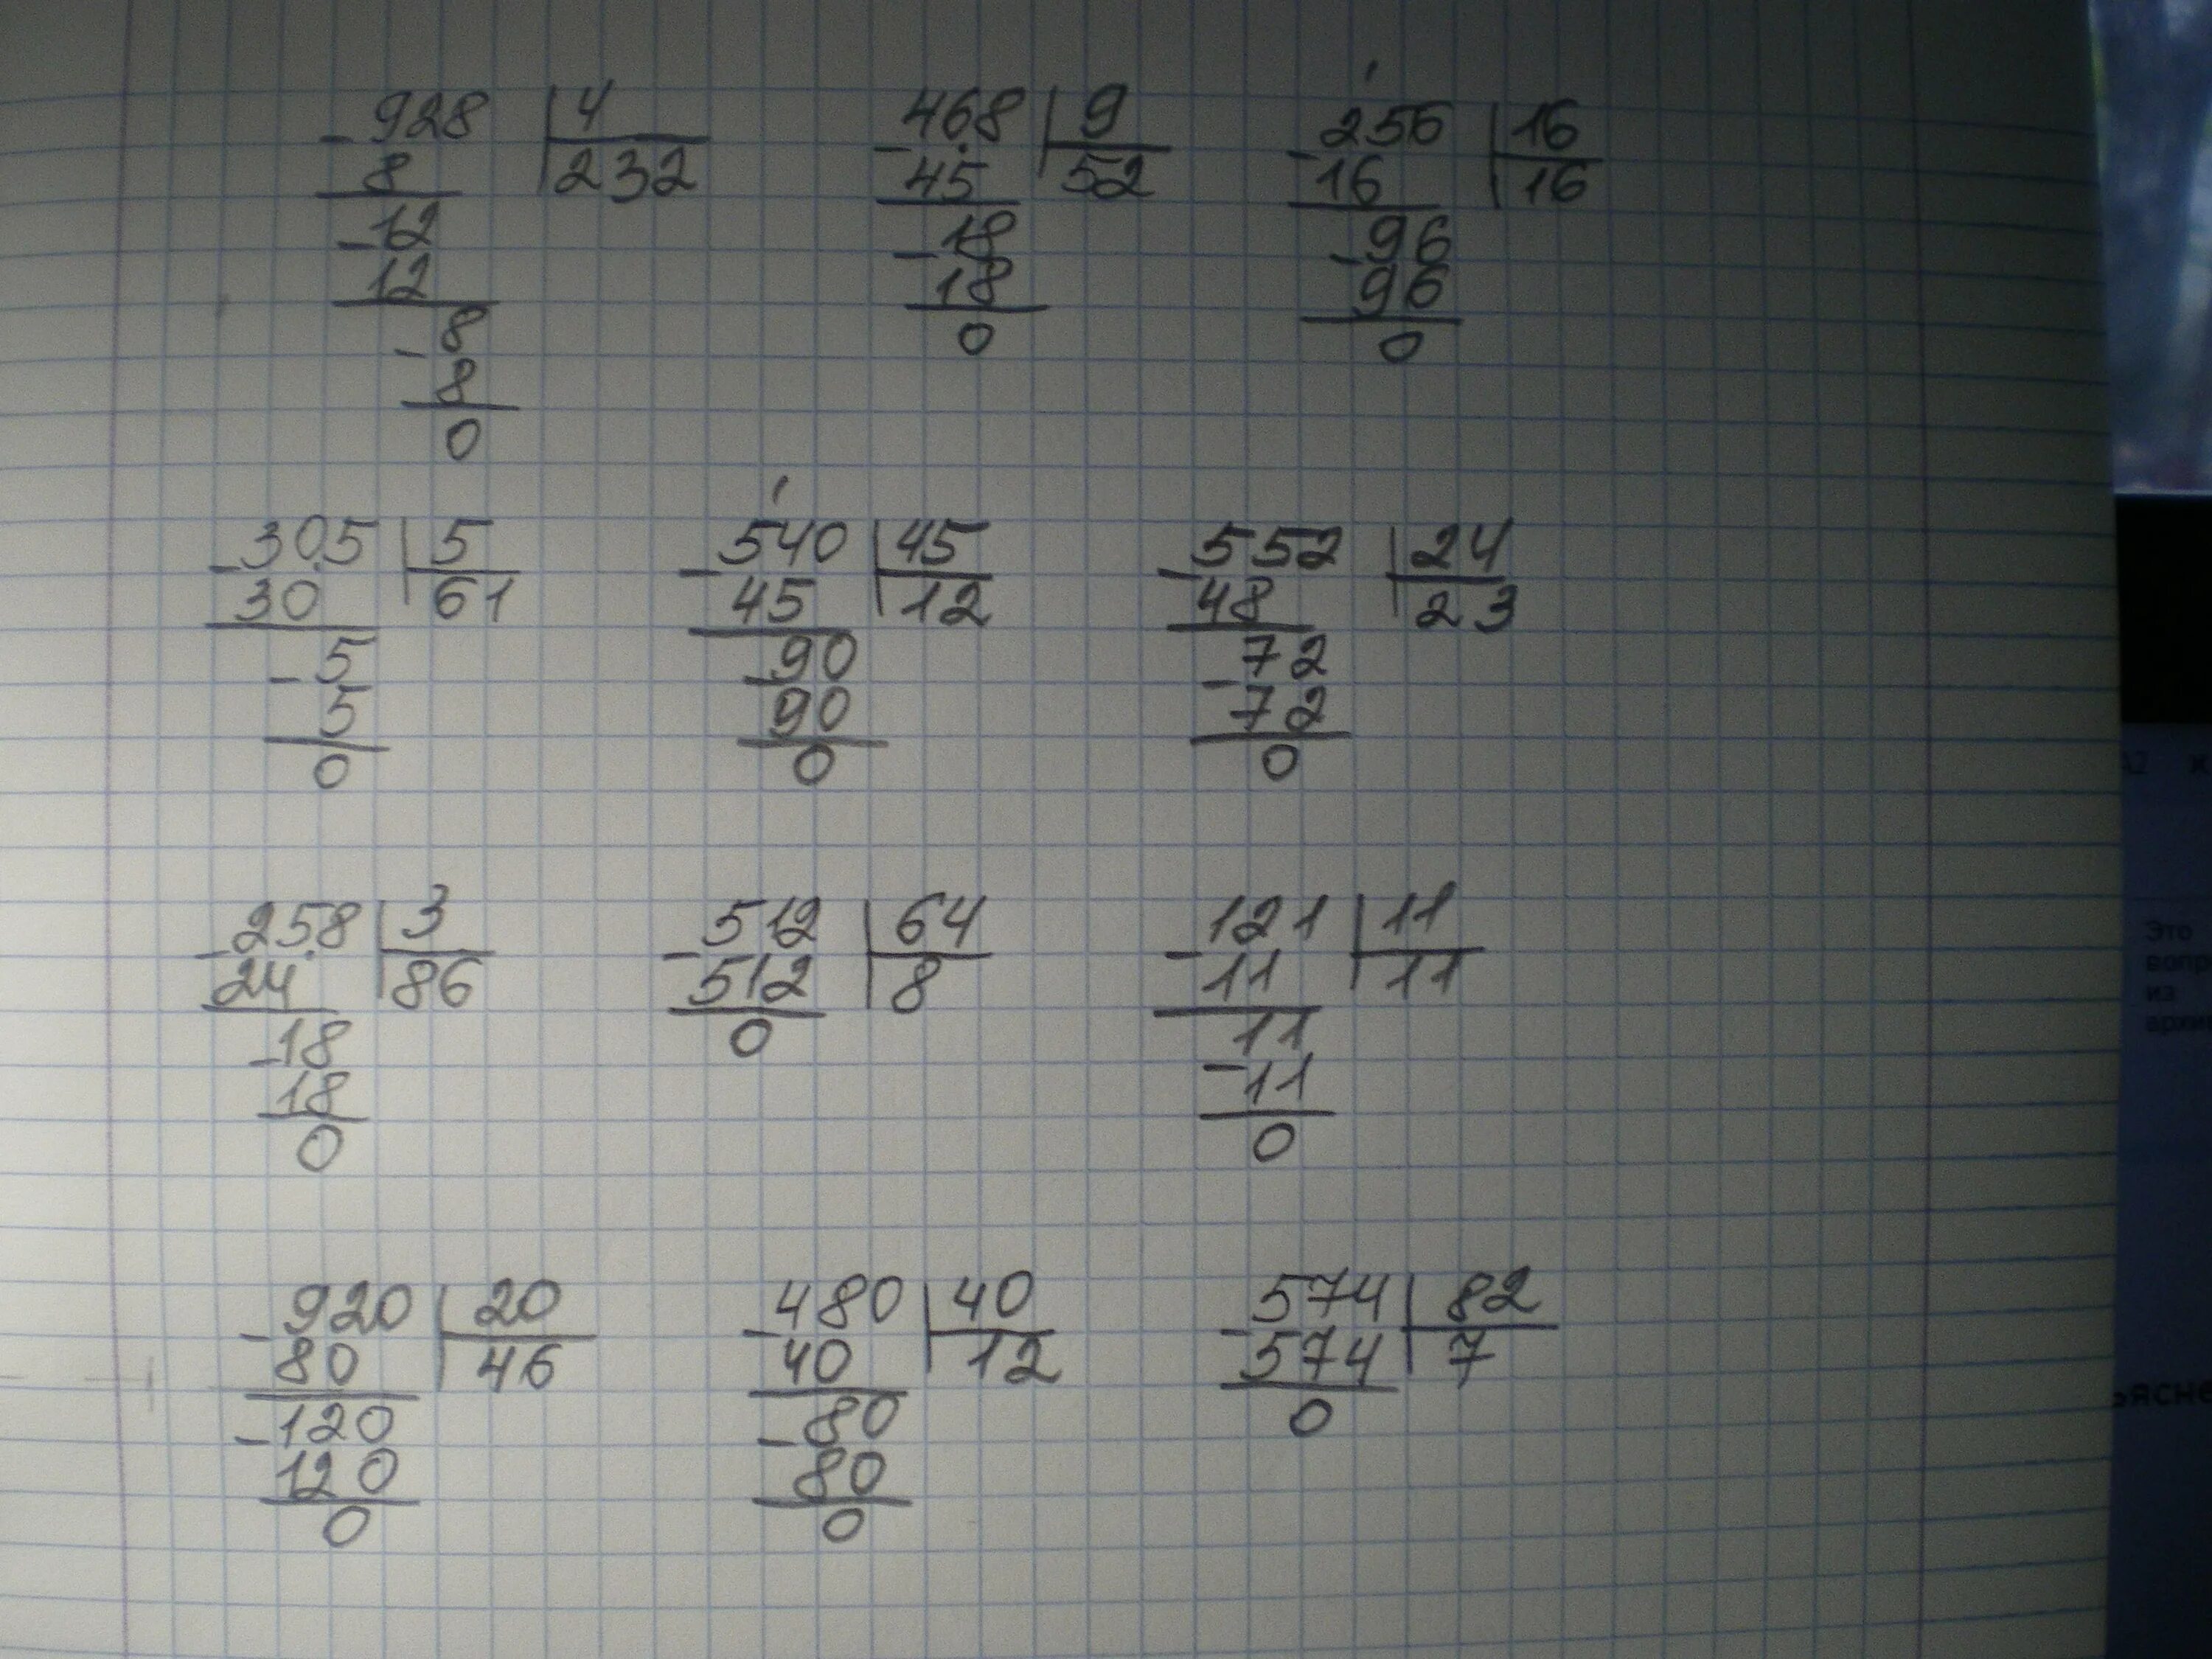 - 928 | 4
8 | 232
- 12
12
- 8
8
0
- 468 | 9
45 | 52
- 18
18
0
- 256 | 16
16 | 16
- 96
96
0
- 305 | 5
30 | 61
- 5
5
0
- 540 | 45
45 | 12
- 90
90
0
- 552 | 24
48 | 23
- 72
72
0
- 258 | 3
24 | 86
- 18
18
0
- 512 | 64
512 | 8
0
- 121 | 11
11 | 11
11
- 11
0
- 920 | 20
80 | 46
- 120
120
0
- 480 | 40
40 | 12
- 80
80
0
- 574 | 82
574 | 7
0
Это
из